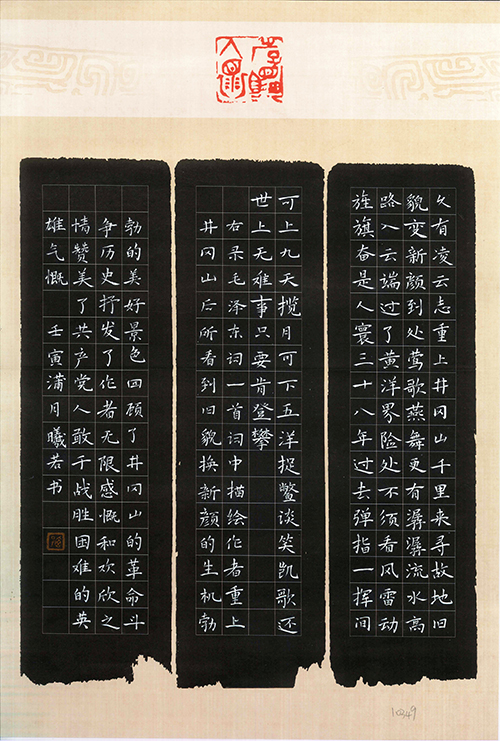 久有凌云志重上井冈山千里来寻故地旧
貌变新颜到处莺歌燕舞更有潺潺流水高
路入云端过了黄洋界险处不须看风雷动
旌旗奋是人寰三十八年过去弹指一挥间
可上九天揽月可下五洋捉鳖谈笑凯歌还
世上无难事只要肯登攀
右录毛泽东词一首词中描绘作者重上
井冈山后所看到旧貌换新颜的生机勃
勃的美好景色回顾了井冈山的革命斗
争历史抒发了作者无限感慨和欢欣之
情赞美了共产党人敢于战胜困难的英
雄气慨 壬寅蒲月曦若书